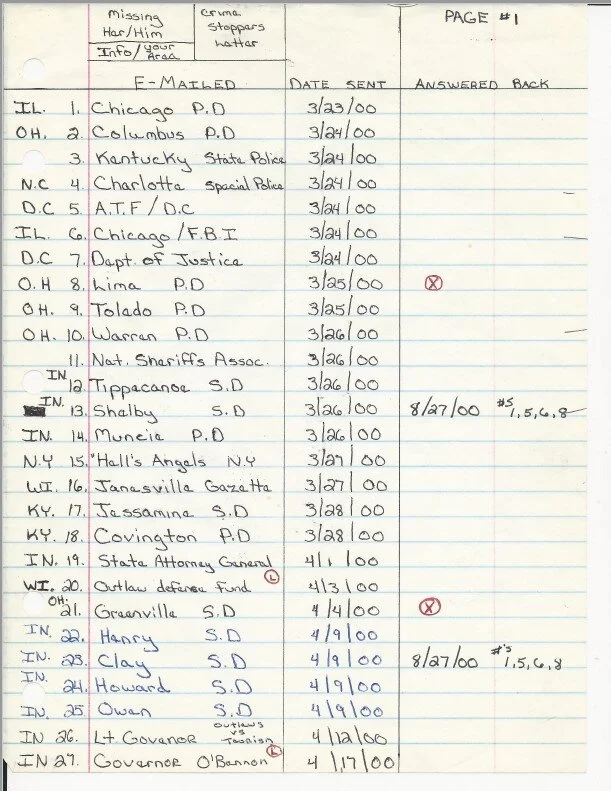 Missing Her/Him Info/your Area
Crime Stoppers Letter
PAGE #1
E-MAILED DATE SENT ANSWERED BACK
IL. 1. Chicago P.D 3/23/00
OH. 2. Columbus P.D 3/24/00
3. Kentucky State Police 3/24/00
N.C 4. Charlotte Special Police 3/24/00
D.C 5. A.T.F/D.C 3/24/00
IL. 6. Chicago/F.B.I 3/24/00
D.C 7. Dept. of Justice 3/24/00
O.H 8. Lima P.D 3/25/00 X
OH. 9. Toledo P.D 3/25/00
OH. 10. Warren P.D 3/26/00
11. Nat. Sheriff's Assoc. 3/26/00
IN. 12. Tippecanoe S.D 3/26/00
IN. 13. Shelby S.D 3/26/00 8/27/00 #'s 1,5,6,8
IN. 14. Muncie P.D 3/26/00
N.Y 15. "Hell's Angels N.Y 3/27/00
WI. 16. Janesville Gazette 3/27/00
KY. 17. Jessamine S.D 3/28/00
KY. 18. Covington P.D 3/28/00
IN. 19. State Attorney General 4/1/00
WI. 20. Outlaw defense fund L 4/3/00
OH. 21. Greenville S.D 4/4/00 X
IN. 22. Henry S.D 4/9/00
IN. 23. Clay S.D 4/9/00 8/27/00 #'s 1,5,6,8
IN. 24. Howard S.D 4/9/00
IN. 25. Owen S.D 4/9/00
IN 26. Lt. Govenor Outlaws vs Tourism 4/12/00
IN 27. Governor O'Bannon L 4/17/00